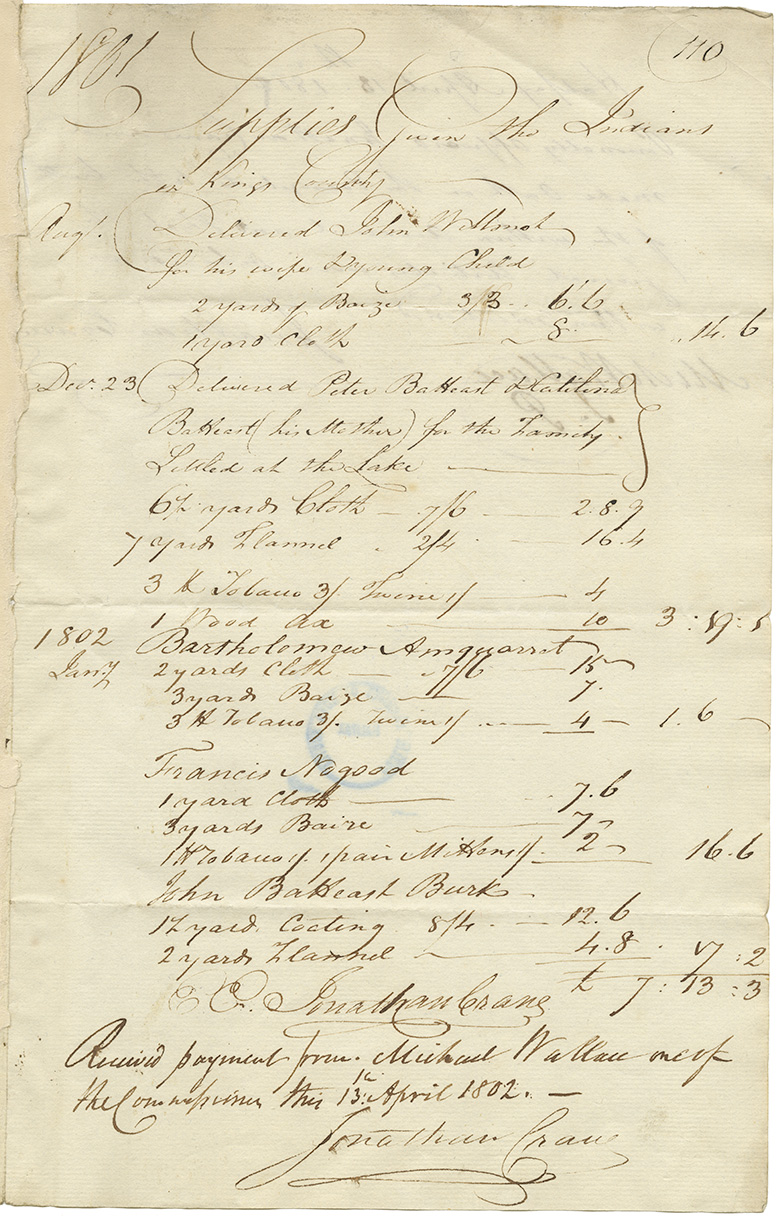 1801
110
Supplies Given the Indians
in Kings County
Augt. Delivered John Wilmot
for his wife & young Child
2 yards of Baize 3/3 6.6
1 yard Cloth 8 14.6
Decr. 23 Delivered Peter Batteast & Catilena
Batteast (his Mother) for the Family
Settled at the Lake
6½ yards Cloth 7/6 2.8.9
7 yards Flannel 2/4 16.4
3 lb Tobacco 3/. Twine 1/ 4
1 Wood Ax 10 3:19:1
1802 Bartholomew Amquarret
Jany 2 yards Cloth 7/6 15
3 yards Baize 7.
3 lb Tobacco 3/. Twine 1/ 4 1.6
Francis Nogood
1 yard Cloth 7.6
3 yards Baize 7
1 lb Tobacco 1/. 1 pair Mittens 1/. 2 16.6
John Batteast Burk
1½ yard Coating 8/4 12.6
2 yards Flannel 4.8 17:2
£ 7:13:3
Jonathan Crane
Received payment from Michael Wallace one of
the Commissioners this 13th April 1802.
Jonathan Crane